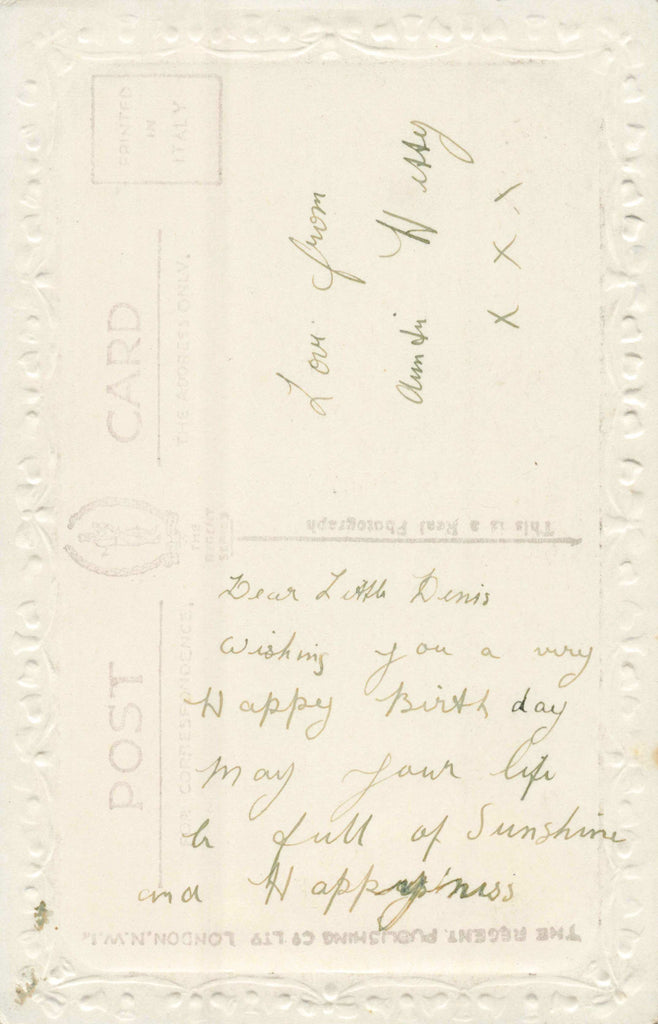 POST CARD
PRINTED
IN
ITALY
FOR CORRESPONDENCE.
THE ADDRESS ONLY.
THE
REGENT
SERIES
This is a Real Photograph
THE REGENT PUBLISHING CO LTD LONDON. N.W.1.
Dear Little Denis
Wishing you a very
Happy Birthday
May your life
be full of Sunshine
and Happyiness
Love from
Auntie
X X X